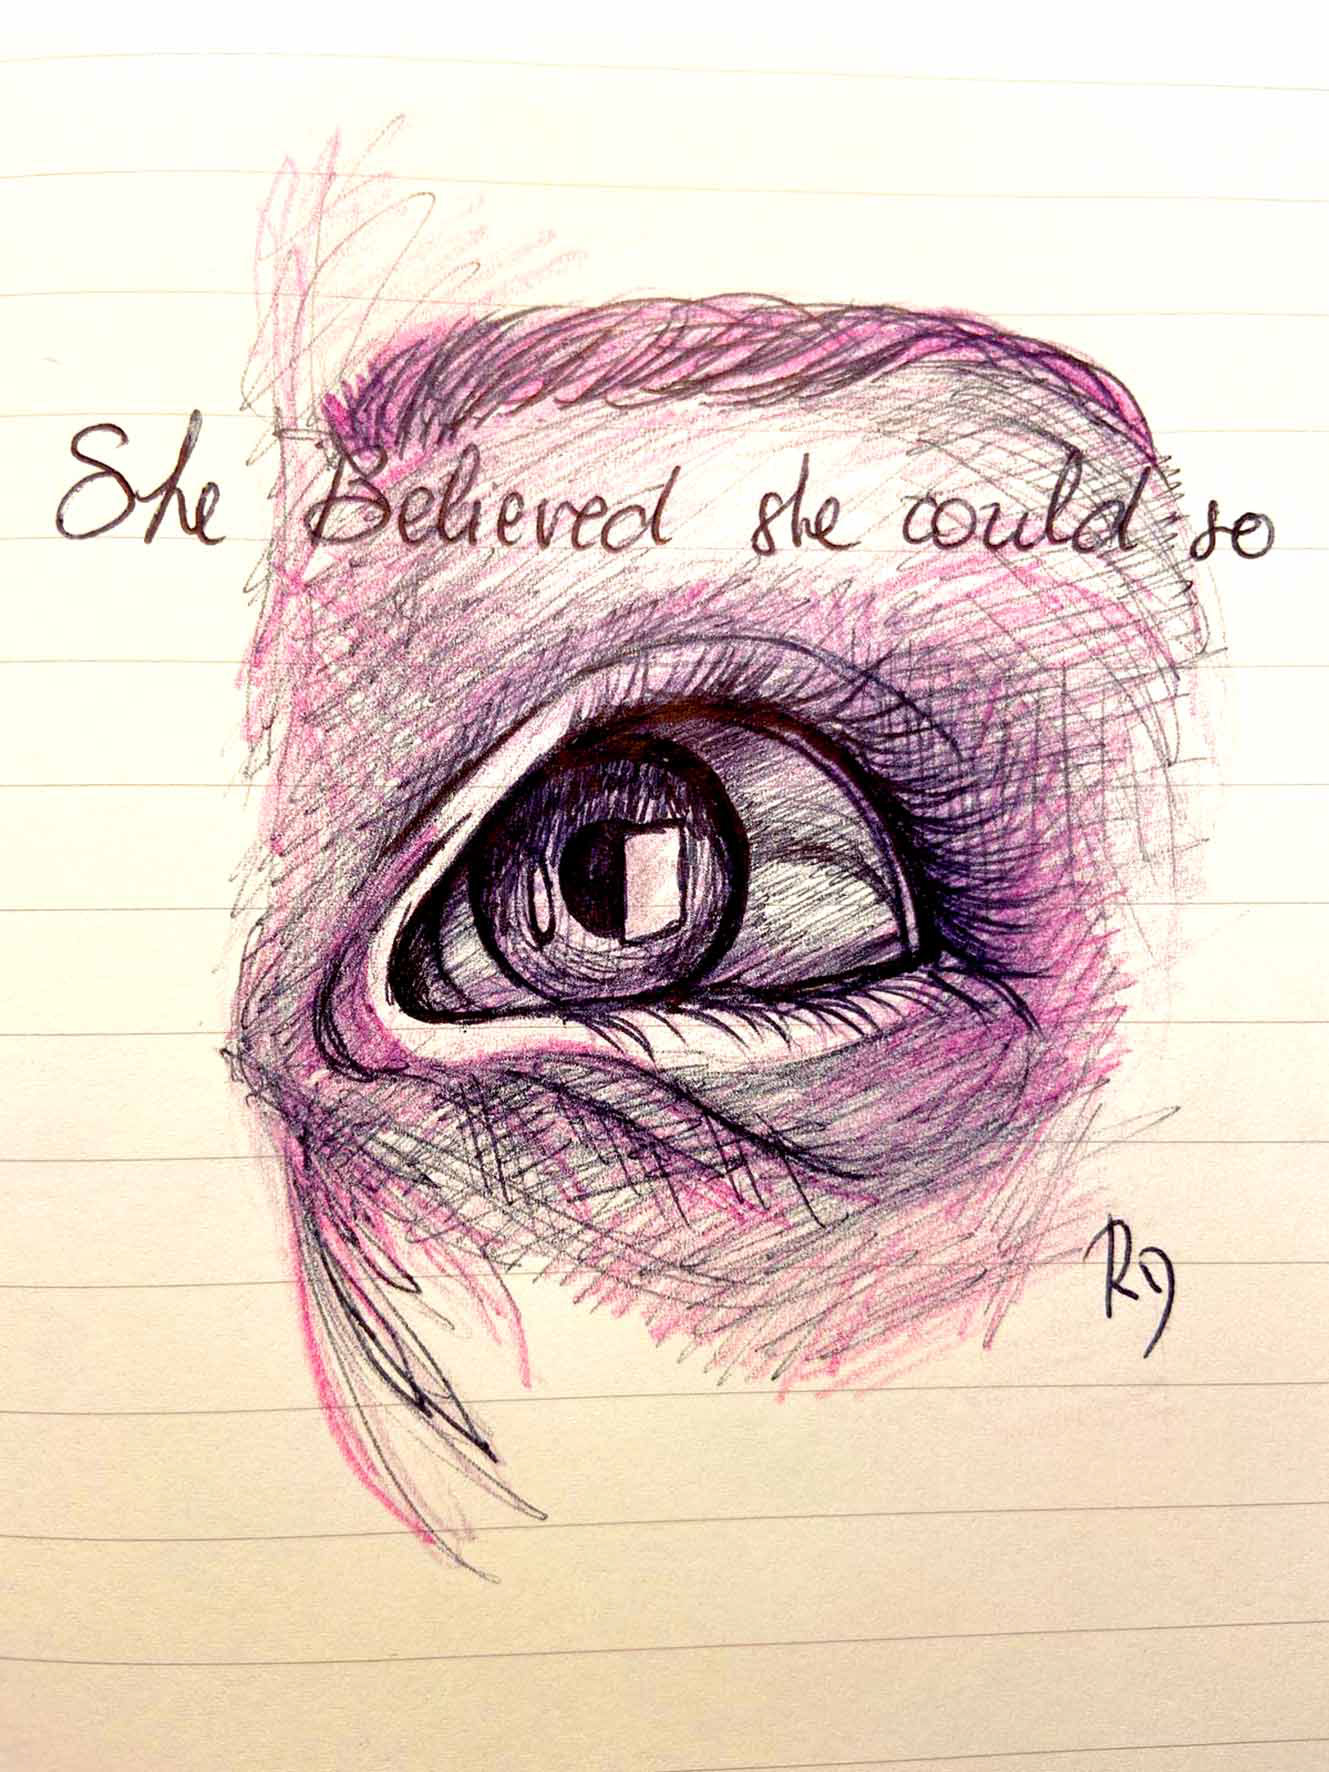 She Believed she could so
RD